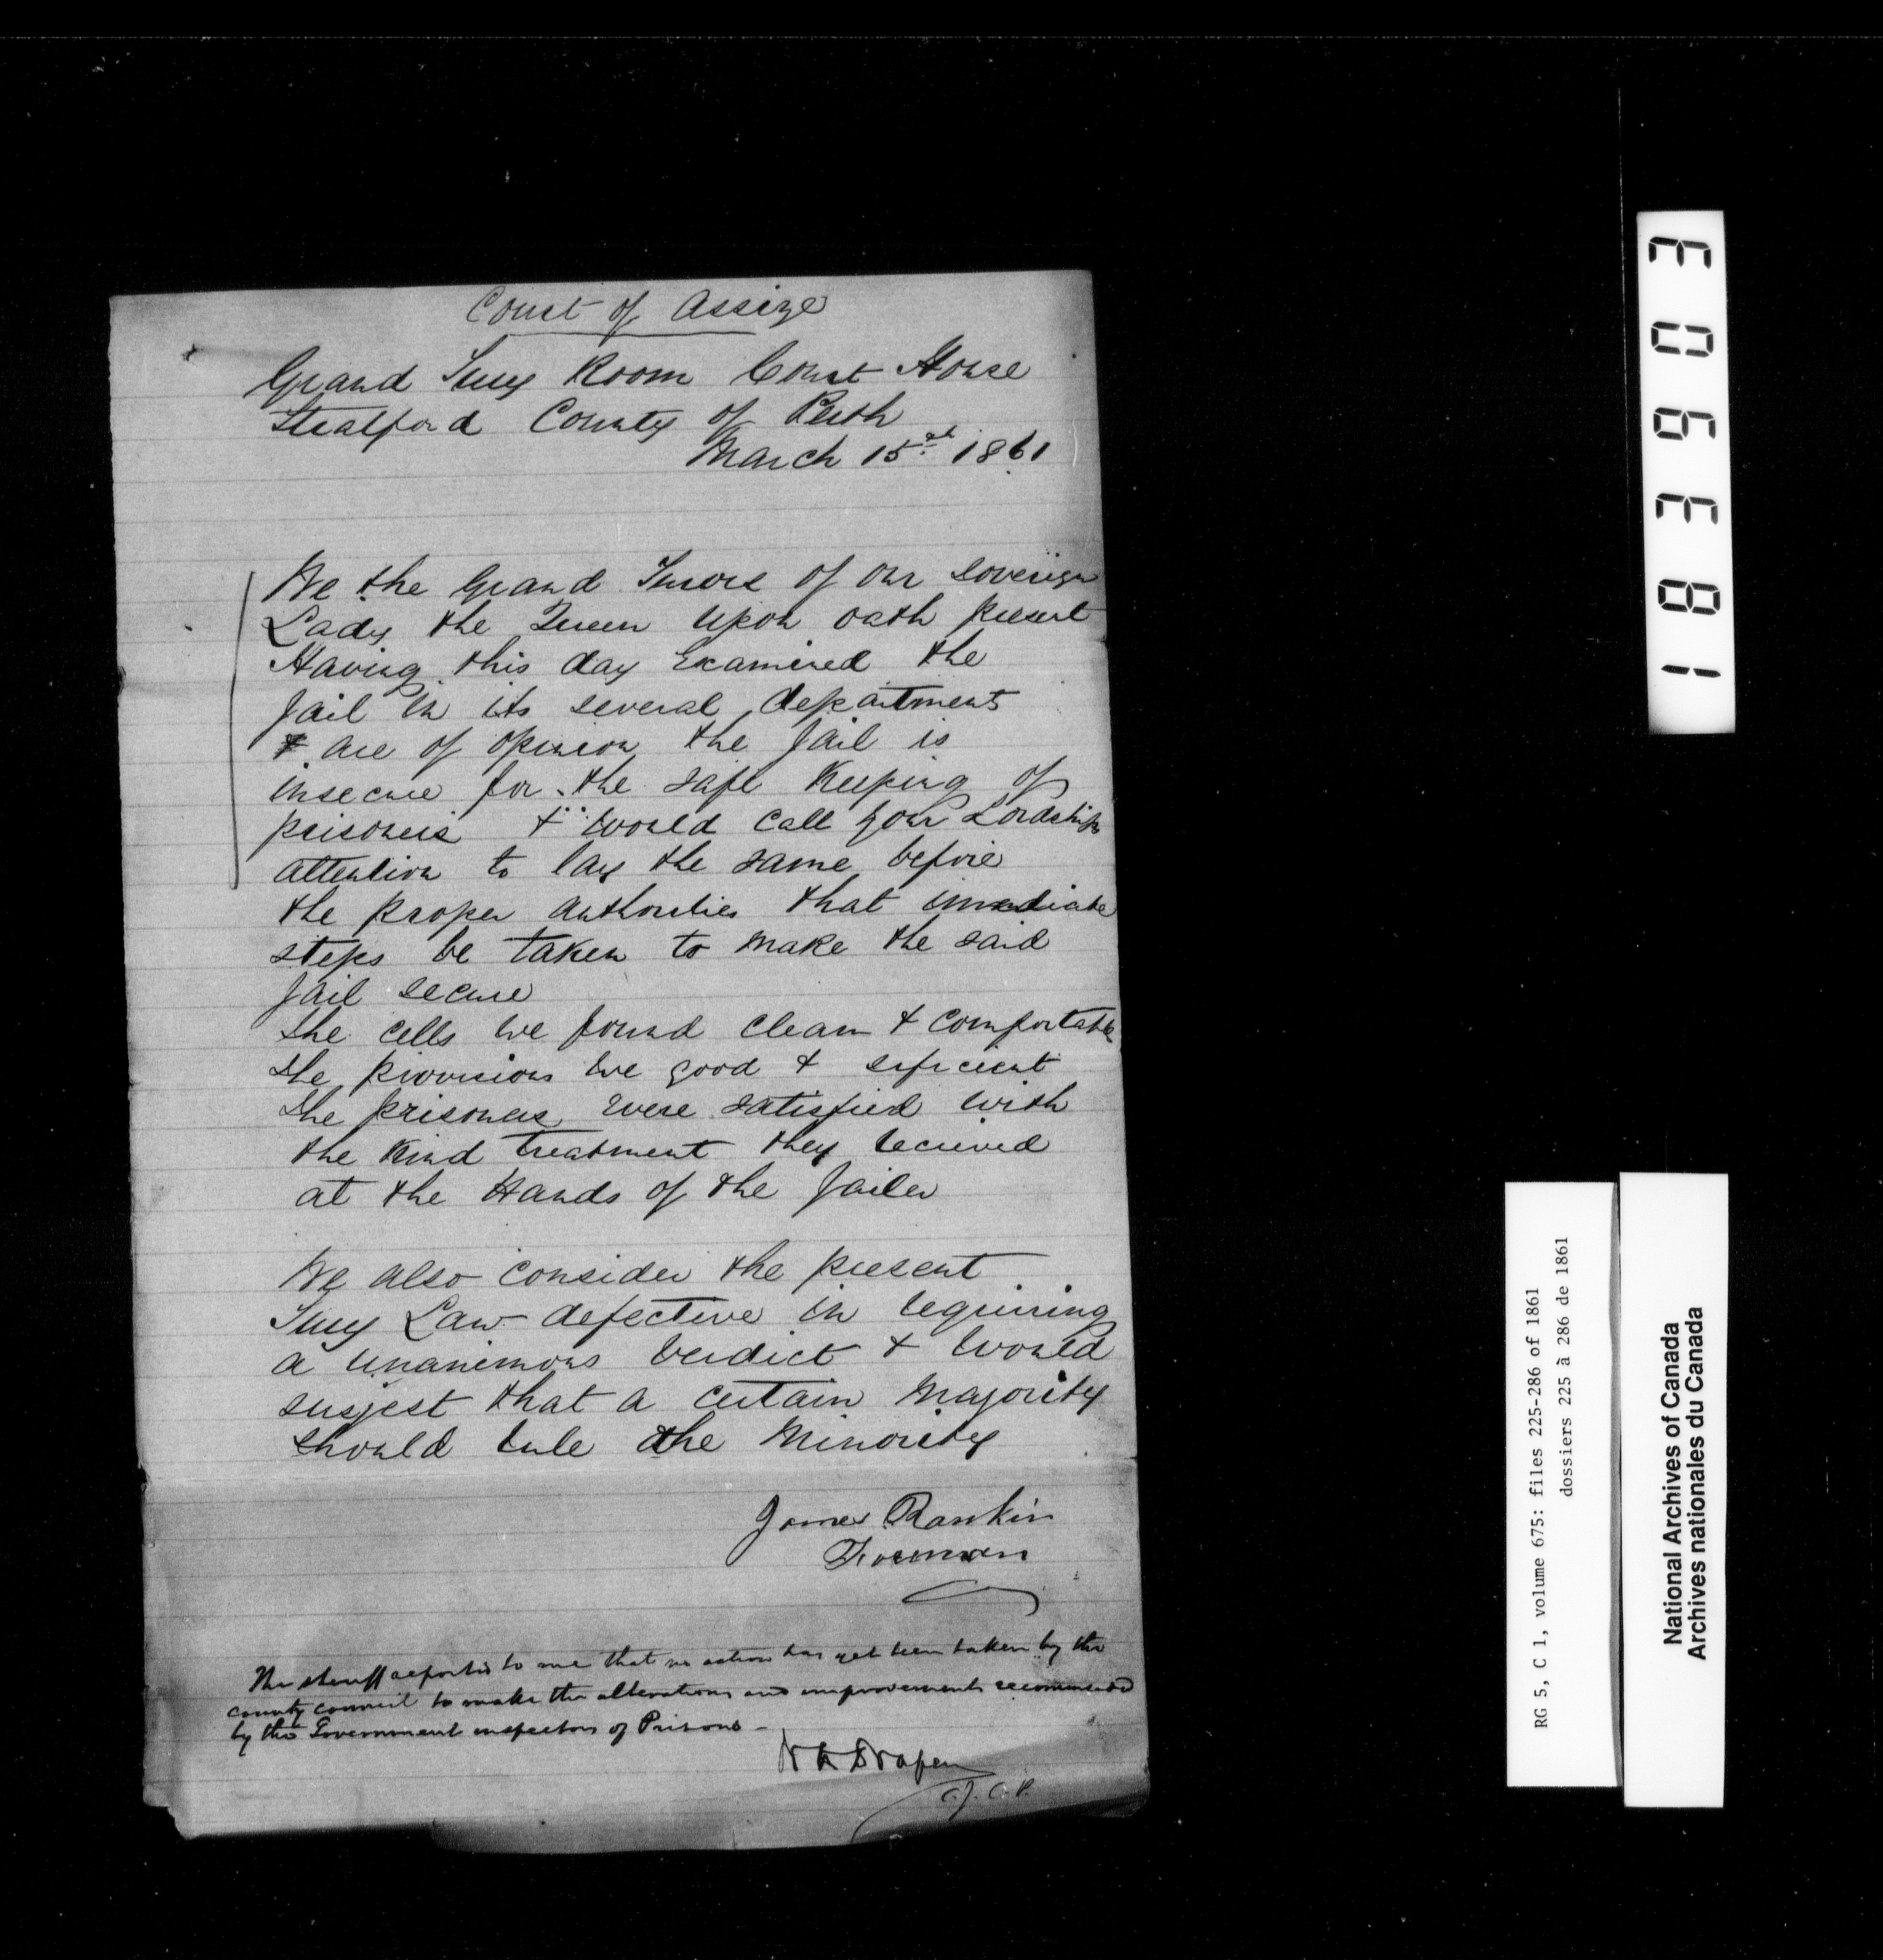 Court of Assize
Grand Jury Room Court House
Stratford County of Perth
March 15th 1861
We the Grand Jurors of our soverign
Lady the Queen upon oath present
Having this day Examined the
Jail in its several departments
& are of opinion the Jail is
insecure for the safe Keeping of
prisoners & would call your Lordships
attention to lay the same before
the proper authorities that imediate
steps be taken to make the said
Jail secure
The cells we found clean & comfortable
The provisions we good & suficient
The prisoners were satisfied with
the kind treatment they recieved
at the Hands of the Jailer
We also consider the present
Jury Law defective in requiring
a unanimous verdict & would
sugjest that a certain Majority
should rule the Minority
James Rankin
Foreman
The sheriff reported to me that no action has yet been taken by the
county council to make the alterations and improvements recommended
by the Government inspectors of Prisons -
Wm H Draper
C.J. C.P.
183903
RG 5, C 1, volume 675: files 225-286 of 1861
dossiers 225 à 286 de 1861
National Archives of Canada
Archives nationales du Canada